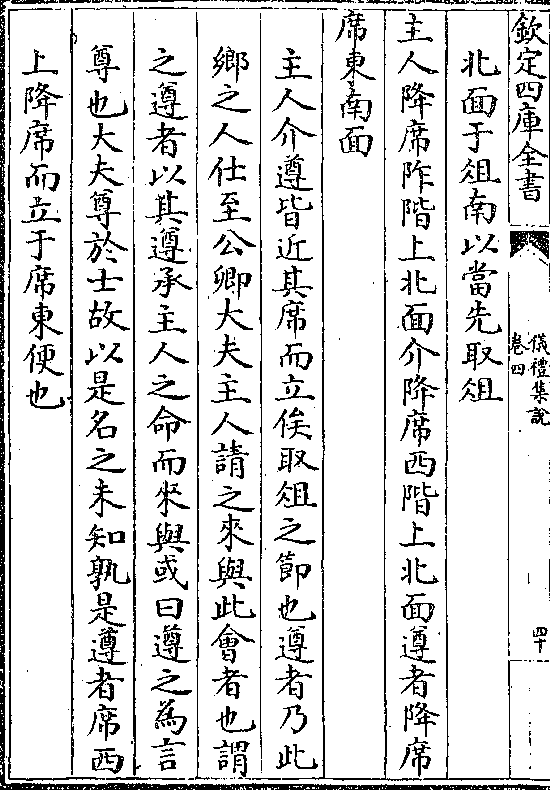 欽定四庫全書
儀禮集說
卷四
四十
北面于俎南以當先取俎
主人降席阼階上北面介降席西階上北面遵者降席
席東南面
主人介遵皆近其席而立俟取俎之節也遵者乃此
鄉之人仕至公卿大夫主人請之來與此會者也謂
之遵者以其遵承主人之命而來與或曰遵之為言
尊也大夫尊於士故以是名之未知孰是遵者席西
上降席而立于席東便也